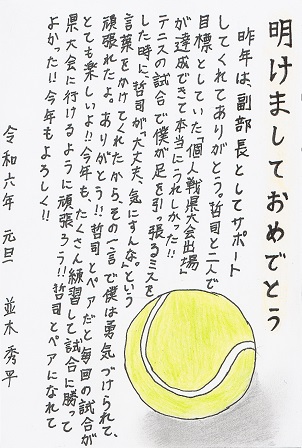 明けましておめでとう
昨年は、副部長としてサポート
してくれてありがとう。哲司と二人で
目標としていた「個人戦県大会出場」
が達成できて本当にうれしかった!!
テニスの試合で僕が足を引っ張るミスを
した時に、哲司が「大丈夫、気にすんな。」という
言葉をかけてくれたから、その一言で僕は勇気づけられて、
頑張れたよ。ありがとう!!哲司とペアだと毎回の試合が
とても楽しいよ!!今年も、たくさん練習して試合に勝って
県大会に行けるように頑張ろう!!哲司とペアになれて
よかった!!今年もよろしく!!
令和六年 元旦 並木秀平